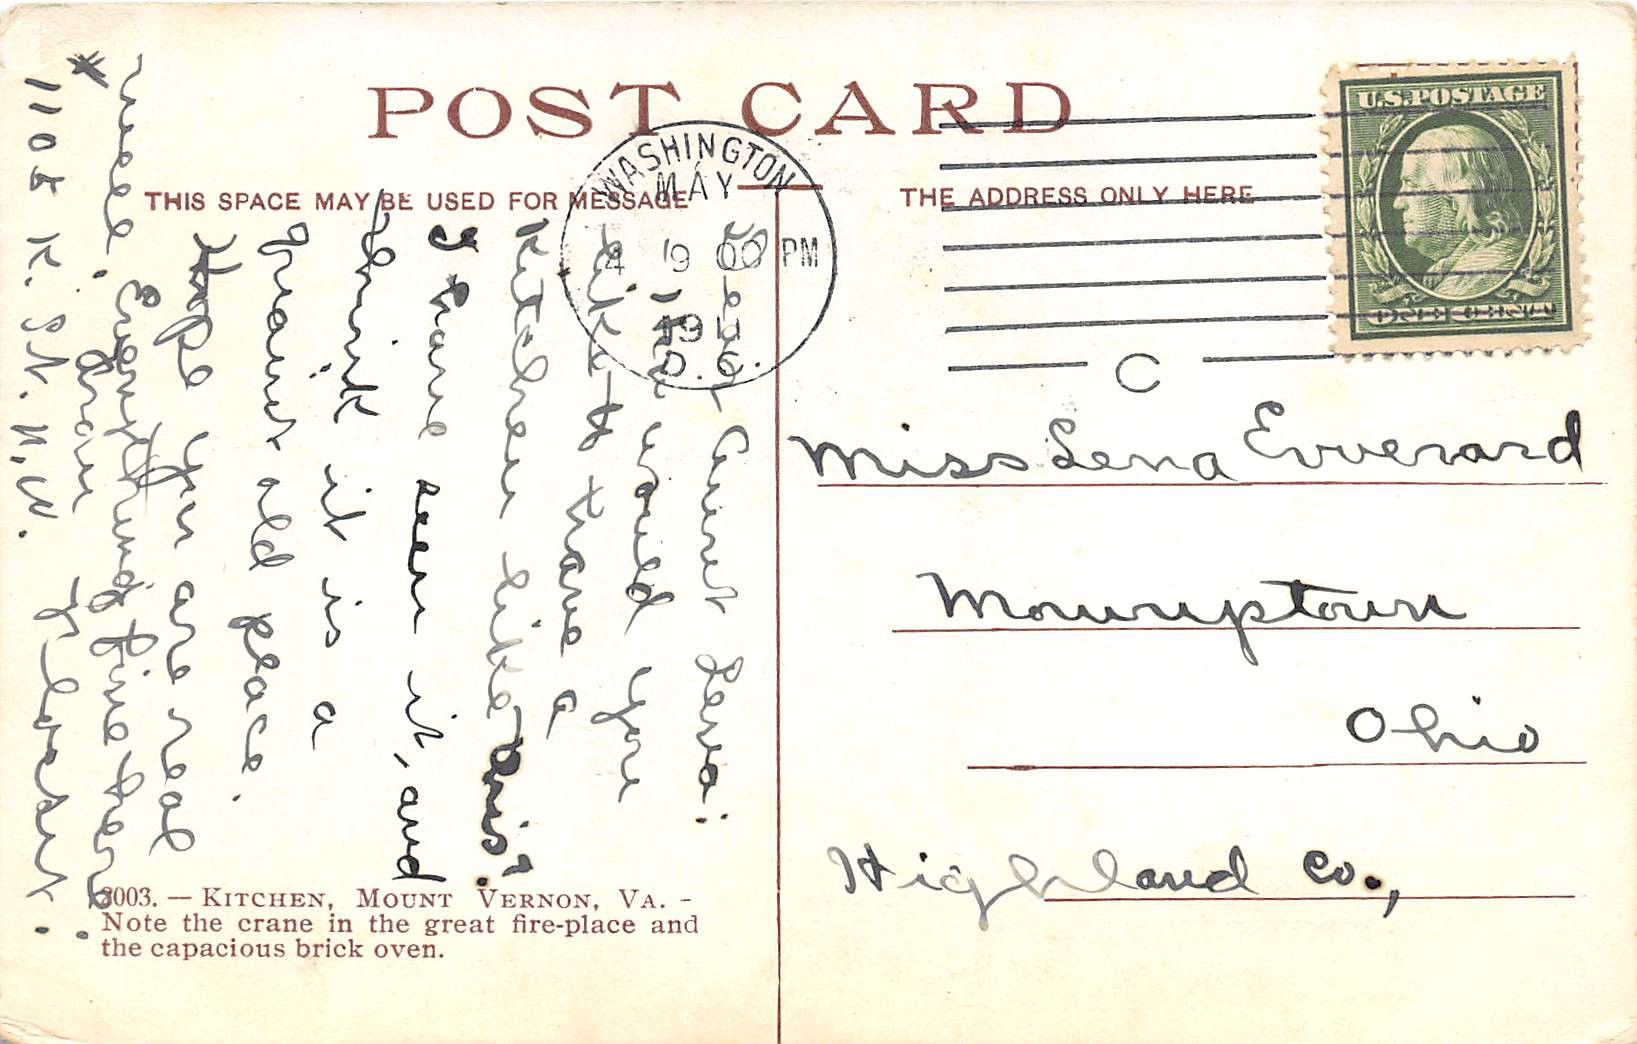 POST CARD
THIS SPACE MAY BE USED FOR MESSAGE
THE ADDRESS ONLY HERE
WASHINGTON
MAY
4 9 00 PM
19
D.C.
C
U.S. POSTAGE
ONE CENT
Dear Aunt Lena:
How would you
like to have a
kitchen like this?
I have seen it, and
think it is a
quaint old place.
Hope you are real
well. Everything fine here
From Robert.
1108 K. St. N.W.
Miss Lena Evverard
Mowrystown
Ohio
Highland Co.,
2003. — KITCHEN, MOUNT VERNON, VA. -
Note the crane in the great fire-place and
the capacious brick oven.